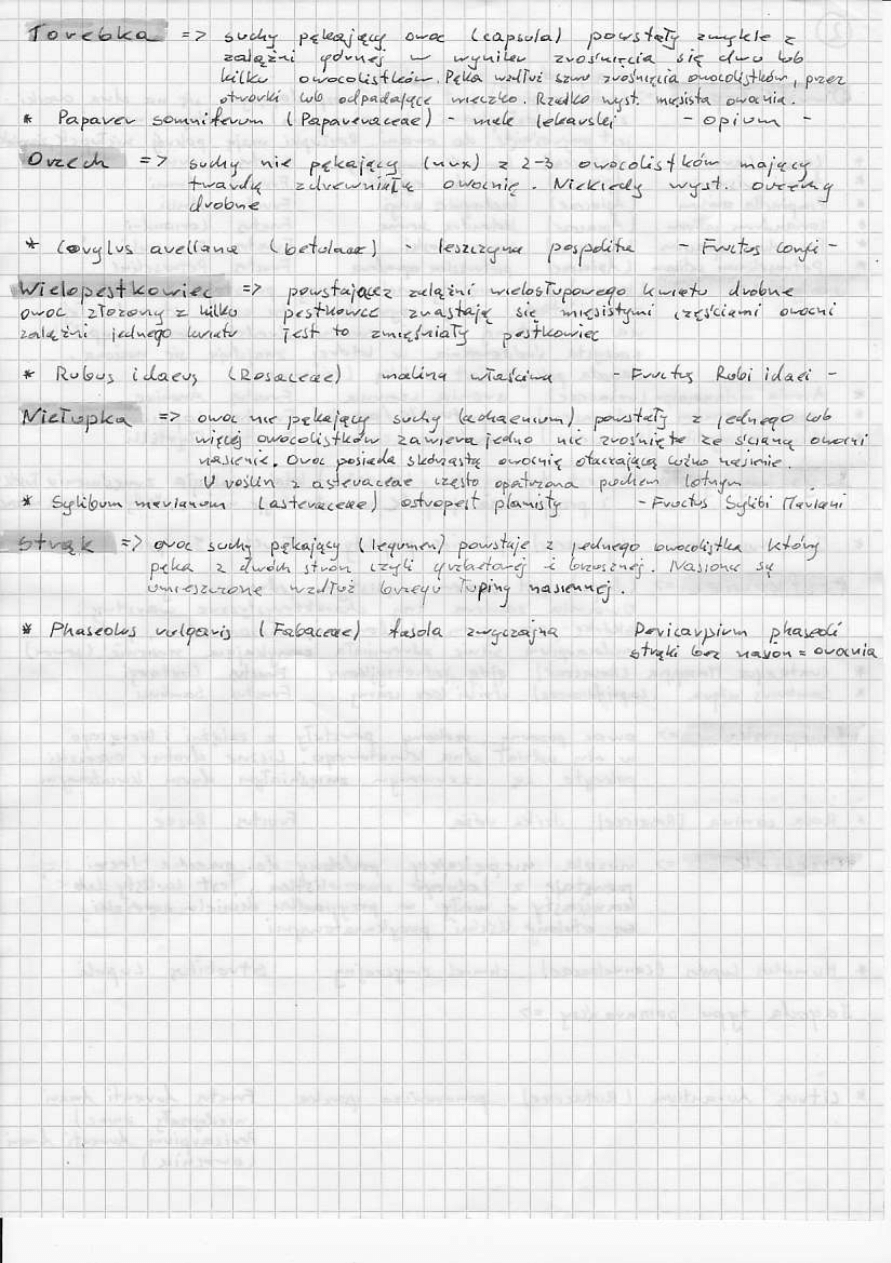 Torebka => suchy pękający owoc (capsula) powstały zwykle z
zalążni górnej w wyniku zrośnięcia się dwu lub
kilku owocolistków. Pęka wzdłuż szwu zrośnięcia owocolistków, przez
otworki lub odpadające wieczko. Rzadko wyst. mięsista owocnia.
* Papaver somniferum (Papaveraceae) - mak lekarski - opium -
Orzech => suchy nie pękający (nux) z 2-3 owocolistków mający
twardą zdrewniałą owocnię. Niekiedy wyst. orzeszki
drobne
* Corylus avellana (betulaae) - leszczyna pospolita - Fructus Coryli -
Wielopestkowiec => powstający z zalążni wielosłupowego kwiatu drobne
owoc złożony z kilku pestkowce zrastają się mięsistymi częściami owocni
zalążni jednego kwiatu jest to zmięśniały pestkowiec
* Rubus idaeus (Rosaceae) malina właściwa - Fructus Rubi idaei -
Niełupka => owoc nie pękający suchy (achaenium) powstały z jednego lub
więcej owocolistków zawiera jedno nie zrośnięte ze ścianą owocni
nasienie. Owoc posiada skórzastą owocnię otaczającą luźno nasienie.
U roślin z astevaceae często opatrzona puchem lotnym
* Sylibum marianum (Asteraceae) ostropest plamisty - Fructus Sylibi Mariani
Strąk => owoc suchy pękający (legumen) powstaje z jednego owocolistka który
pęka z dwóch stron czyli grzbietowej i brzusznej. Nasiona są
umieszczone wzdłuż brzegu łupiny nasiennej.
* Phaseolus vulgaris (Fabaceae) fasola zwyczajna Pericarpium phaseoli
strąki bez nasion = owocnia